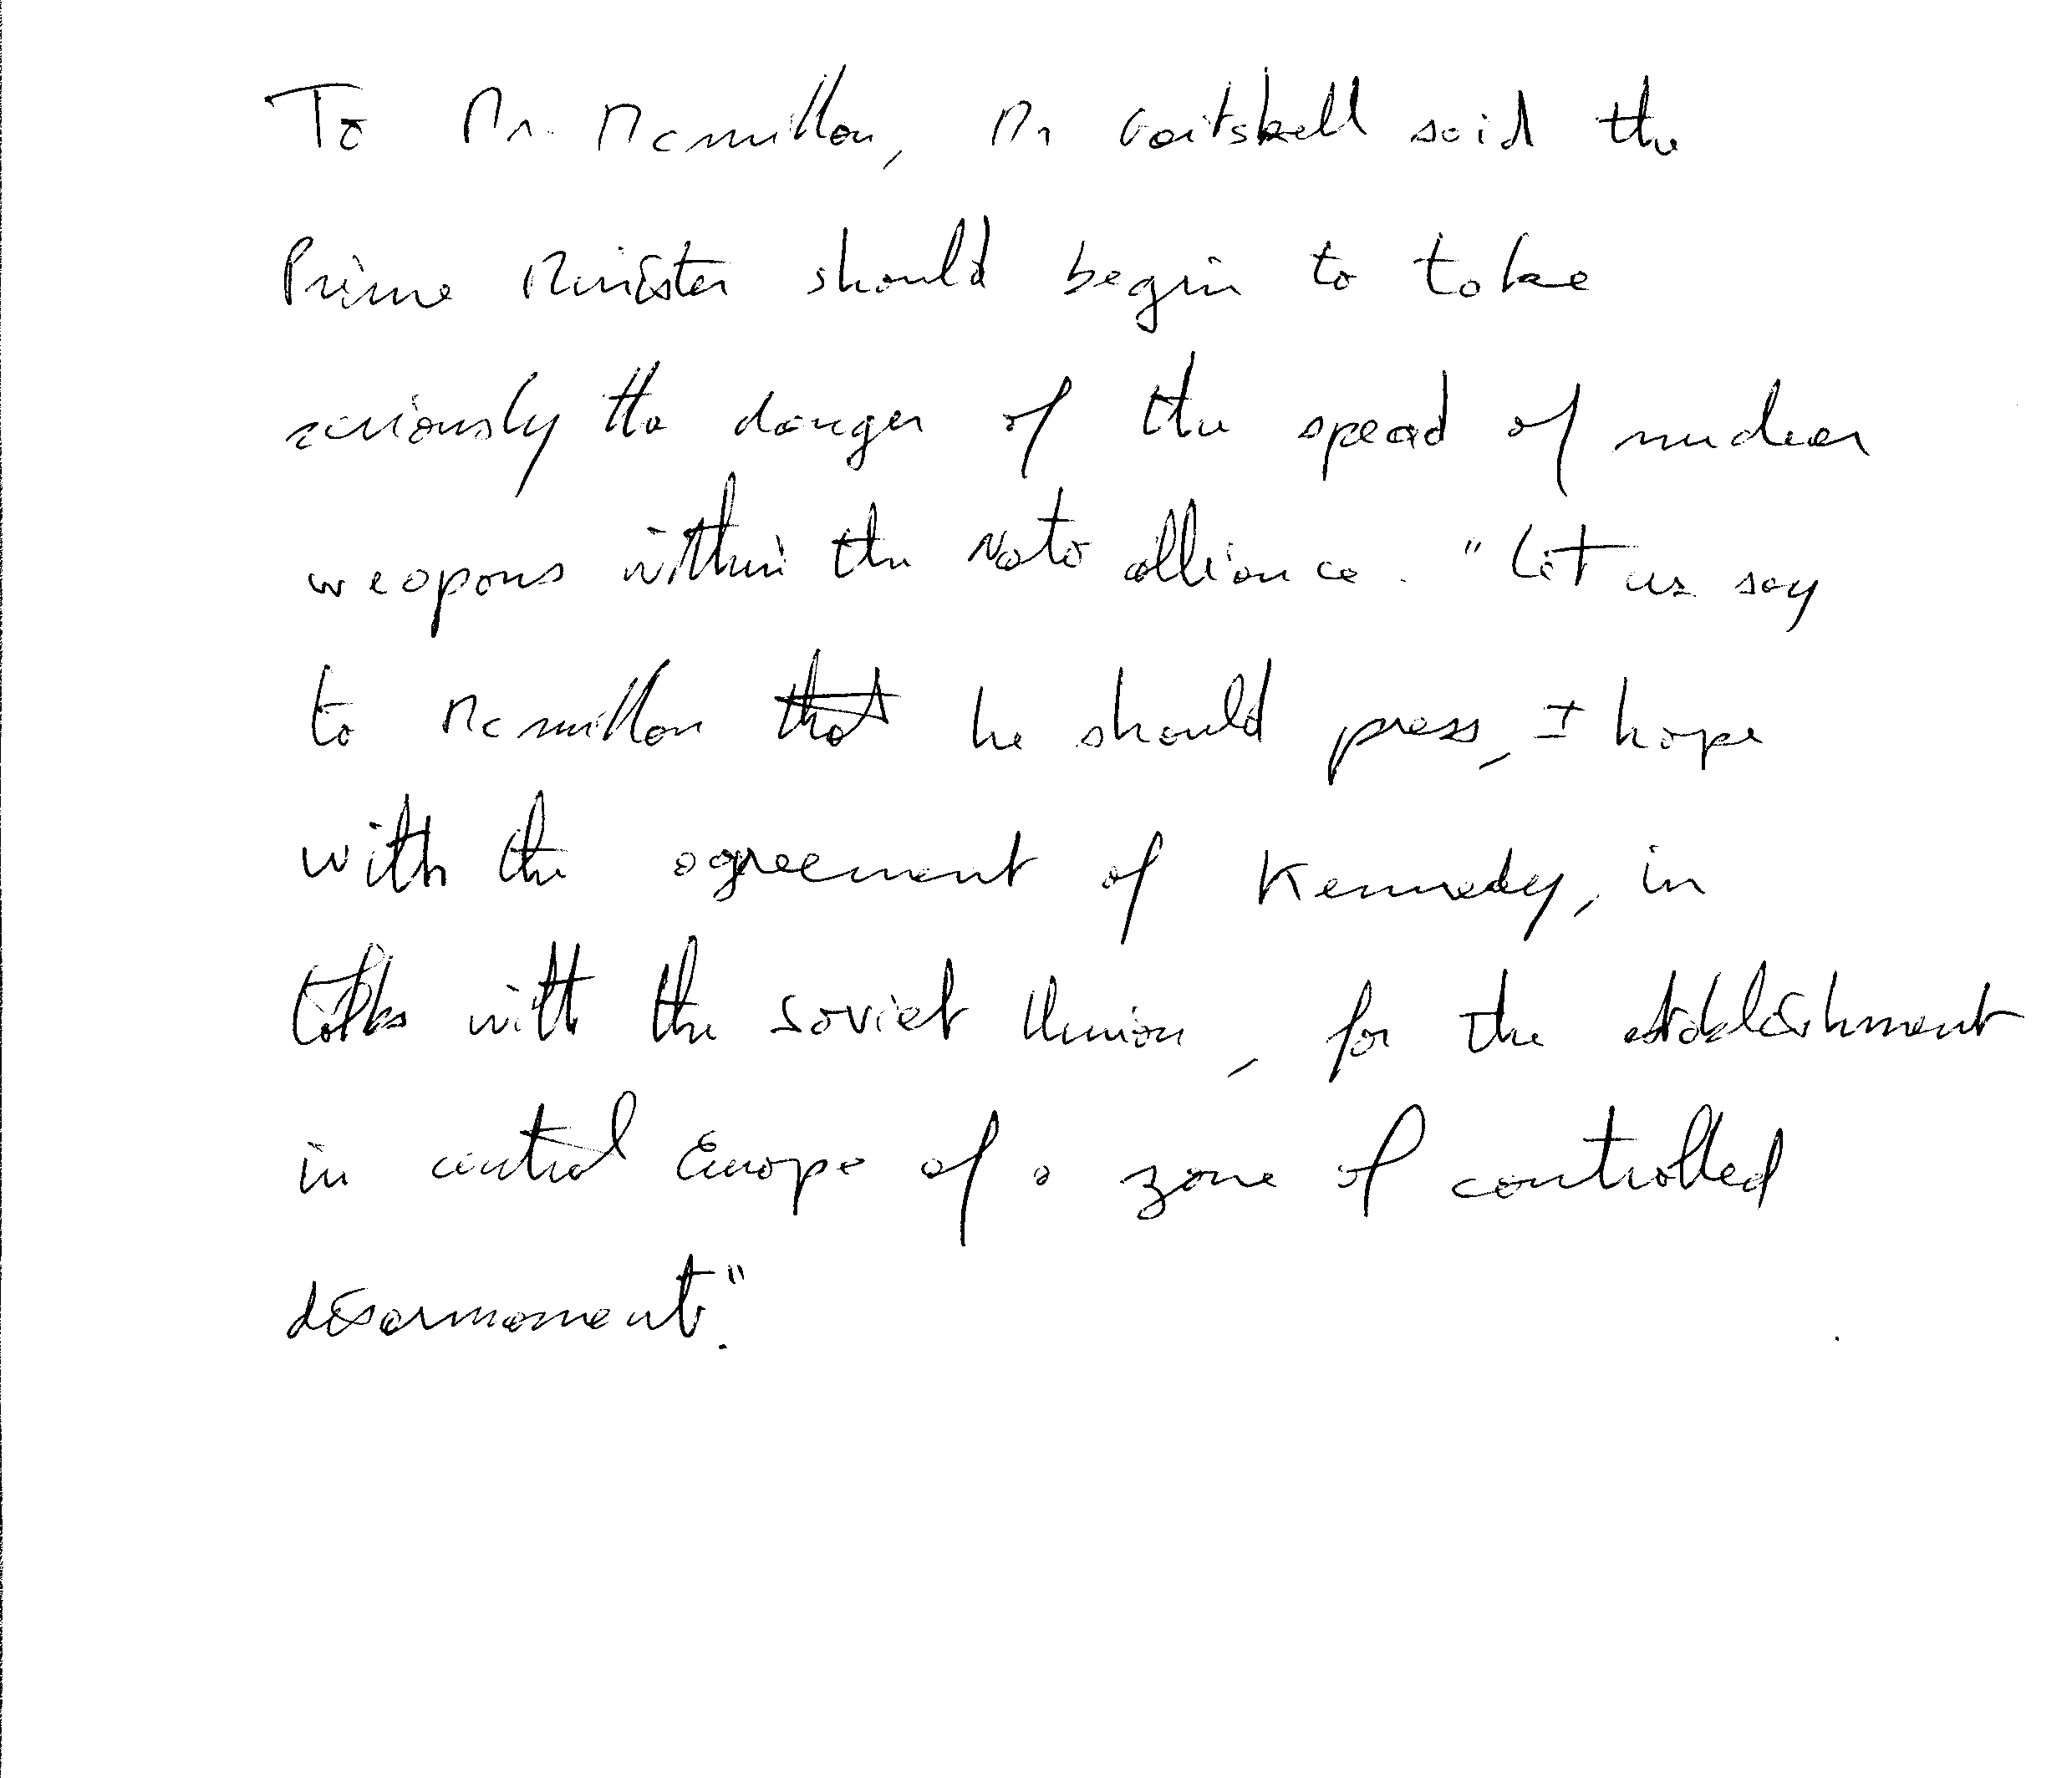 To Mr. Mcmillan, Mr Gaitskell said the
Prime Minister should begin to take
seriously the danger of the spead of nuclear
weapons within the Nato alliance. "Let us say
to Mcmillan that he should press, I hope
with the agreement of Kennedy, in
talks with the Soviet Union, for the establishment
in central Europe of a zone of controlled
disarmament."